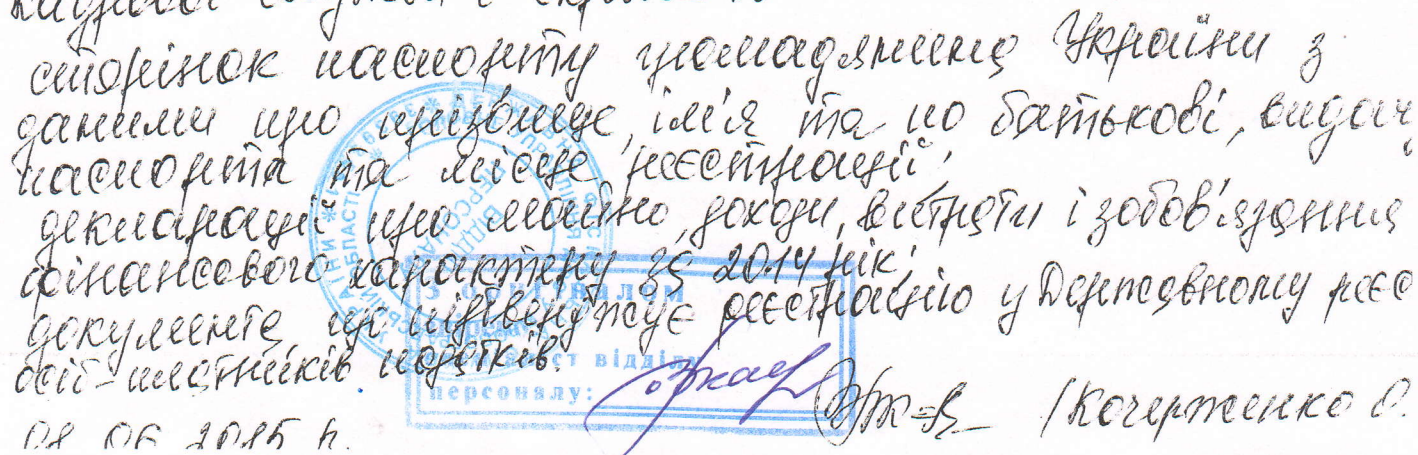 кадрової служби і скріплені
сторінок паспорту громадянина України з
даними про прізвище, ім'я та по батькові, видачу
паспорта та місце реєстрації;
декларації про майно, доходи, витрати і зобов'язання
фінансового характеру за 2014 рік;
документа, що підтверджує реєстрацію у Державному реєс
осіб-платників податків.
З оригіналом
відділу
персоналу:
/Кочерженко О.
01 06 2015 р.